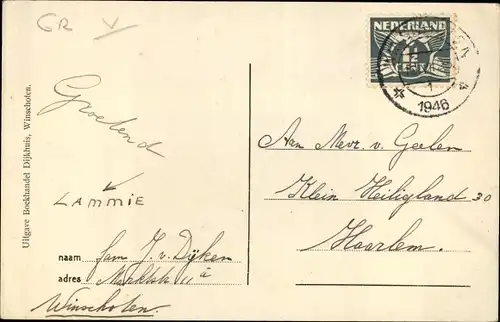 GR V
NEDERLAND
1½
CENT
1946
Groetend
LAMMIE
Uitgave Boekhandel Dijkhuis, Winschoten.
naam fam J. v. Dijken
adres Marktstr 11 a
Winschoten.
Aan Mevr. v. Geelen
Klein Heiligland 30
Haarlem.